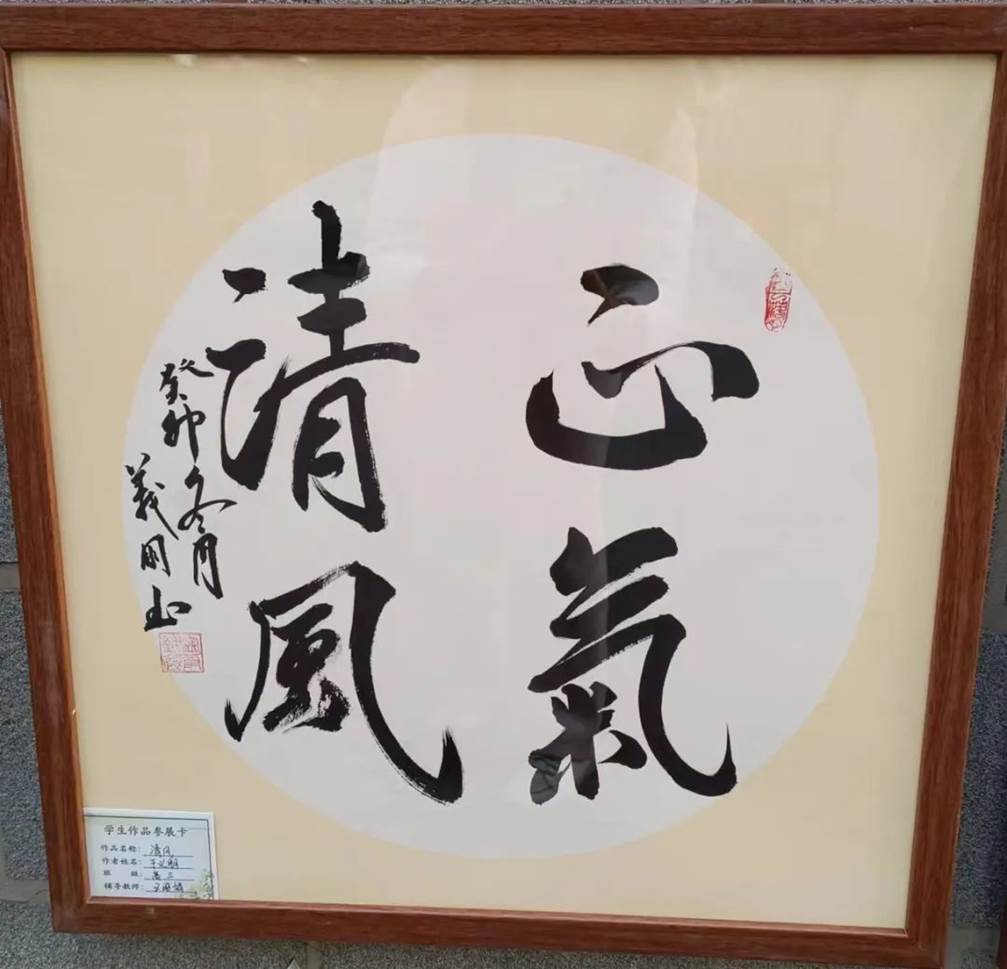 正氣
清風
癸卯冬月
義明书
学生作品参展卡
作品名称：清风
作者姓名：于义明
班　　级：高三
辅导教师：